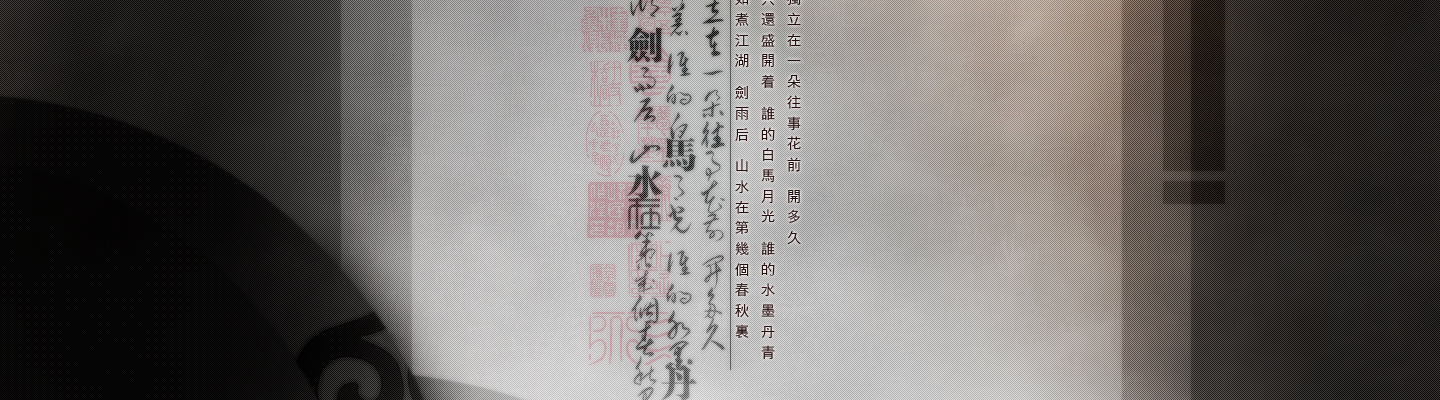 獨立在一朵往事花前 開多久
只還盛開着 誰的白馬月光 誰的水墨丹青
如煮江湖 劍雨后 山水在第幾個春秋裏
立在一朵往事花前 開多久
誰的白馬月光 誰的水墨丹
湖 劍雨后 山水在第幾個春秋裏